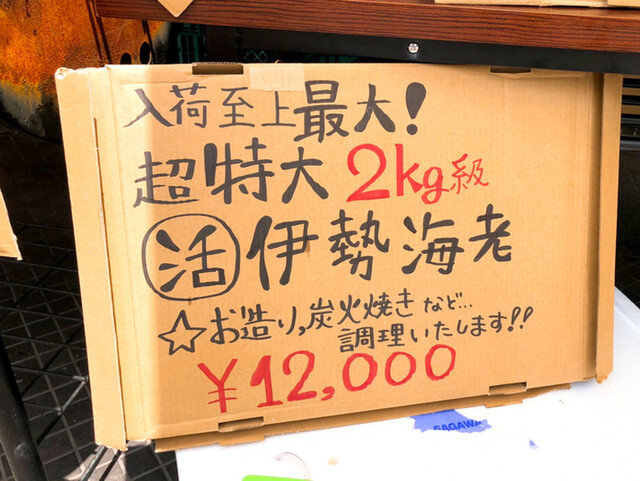 入荷至上最大!
超特大2kg級
活伊勢海老
☆お造り,炭火焼きなど…
調理いたします!!
¥12,000
SAGAWA